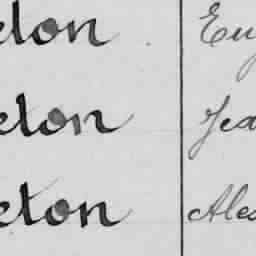 elon Eug
eton Jea
eton Ales